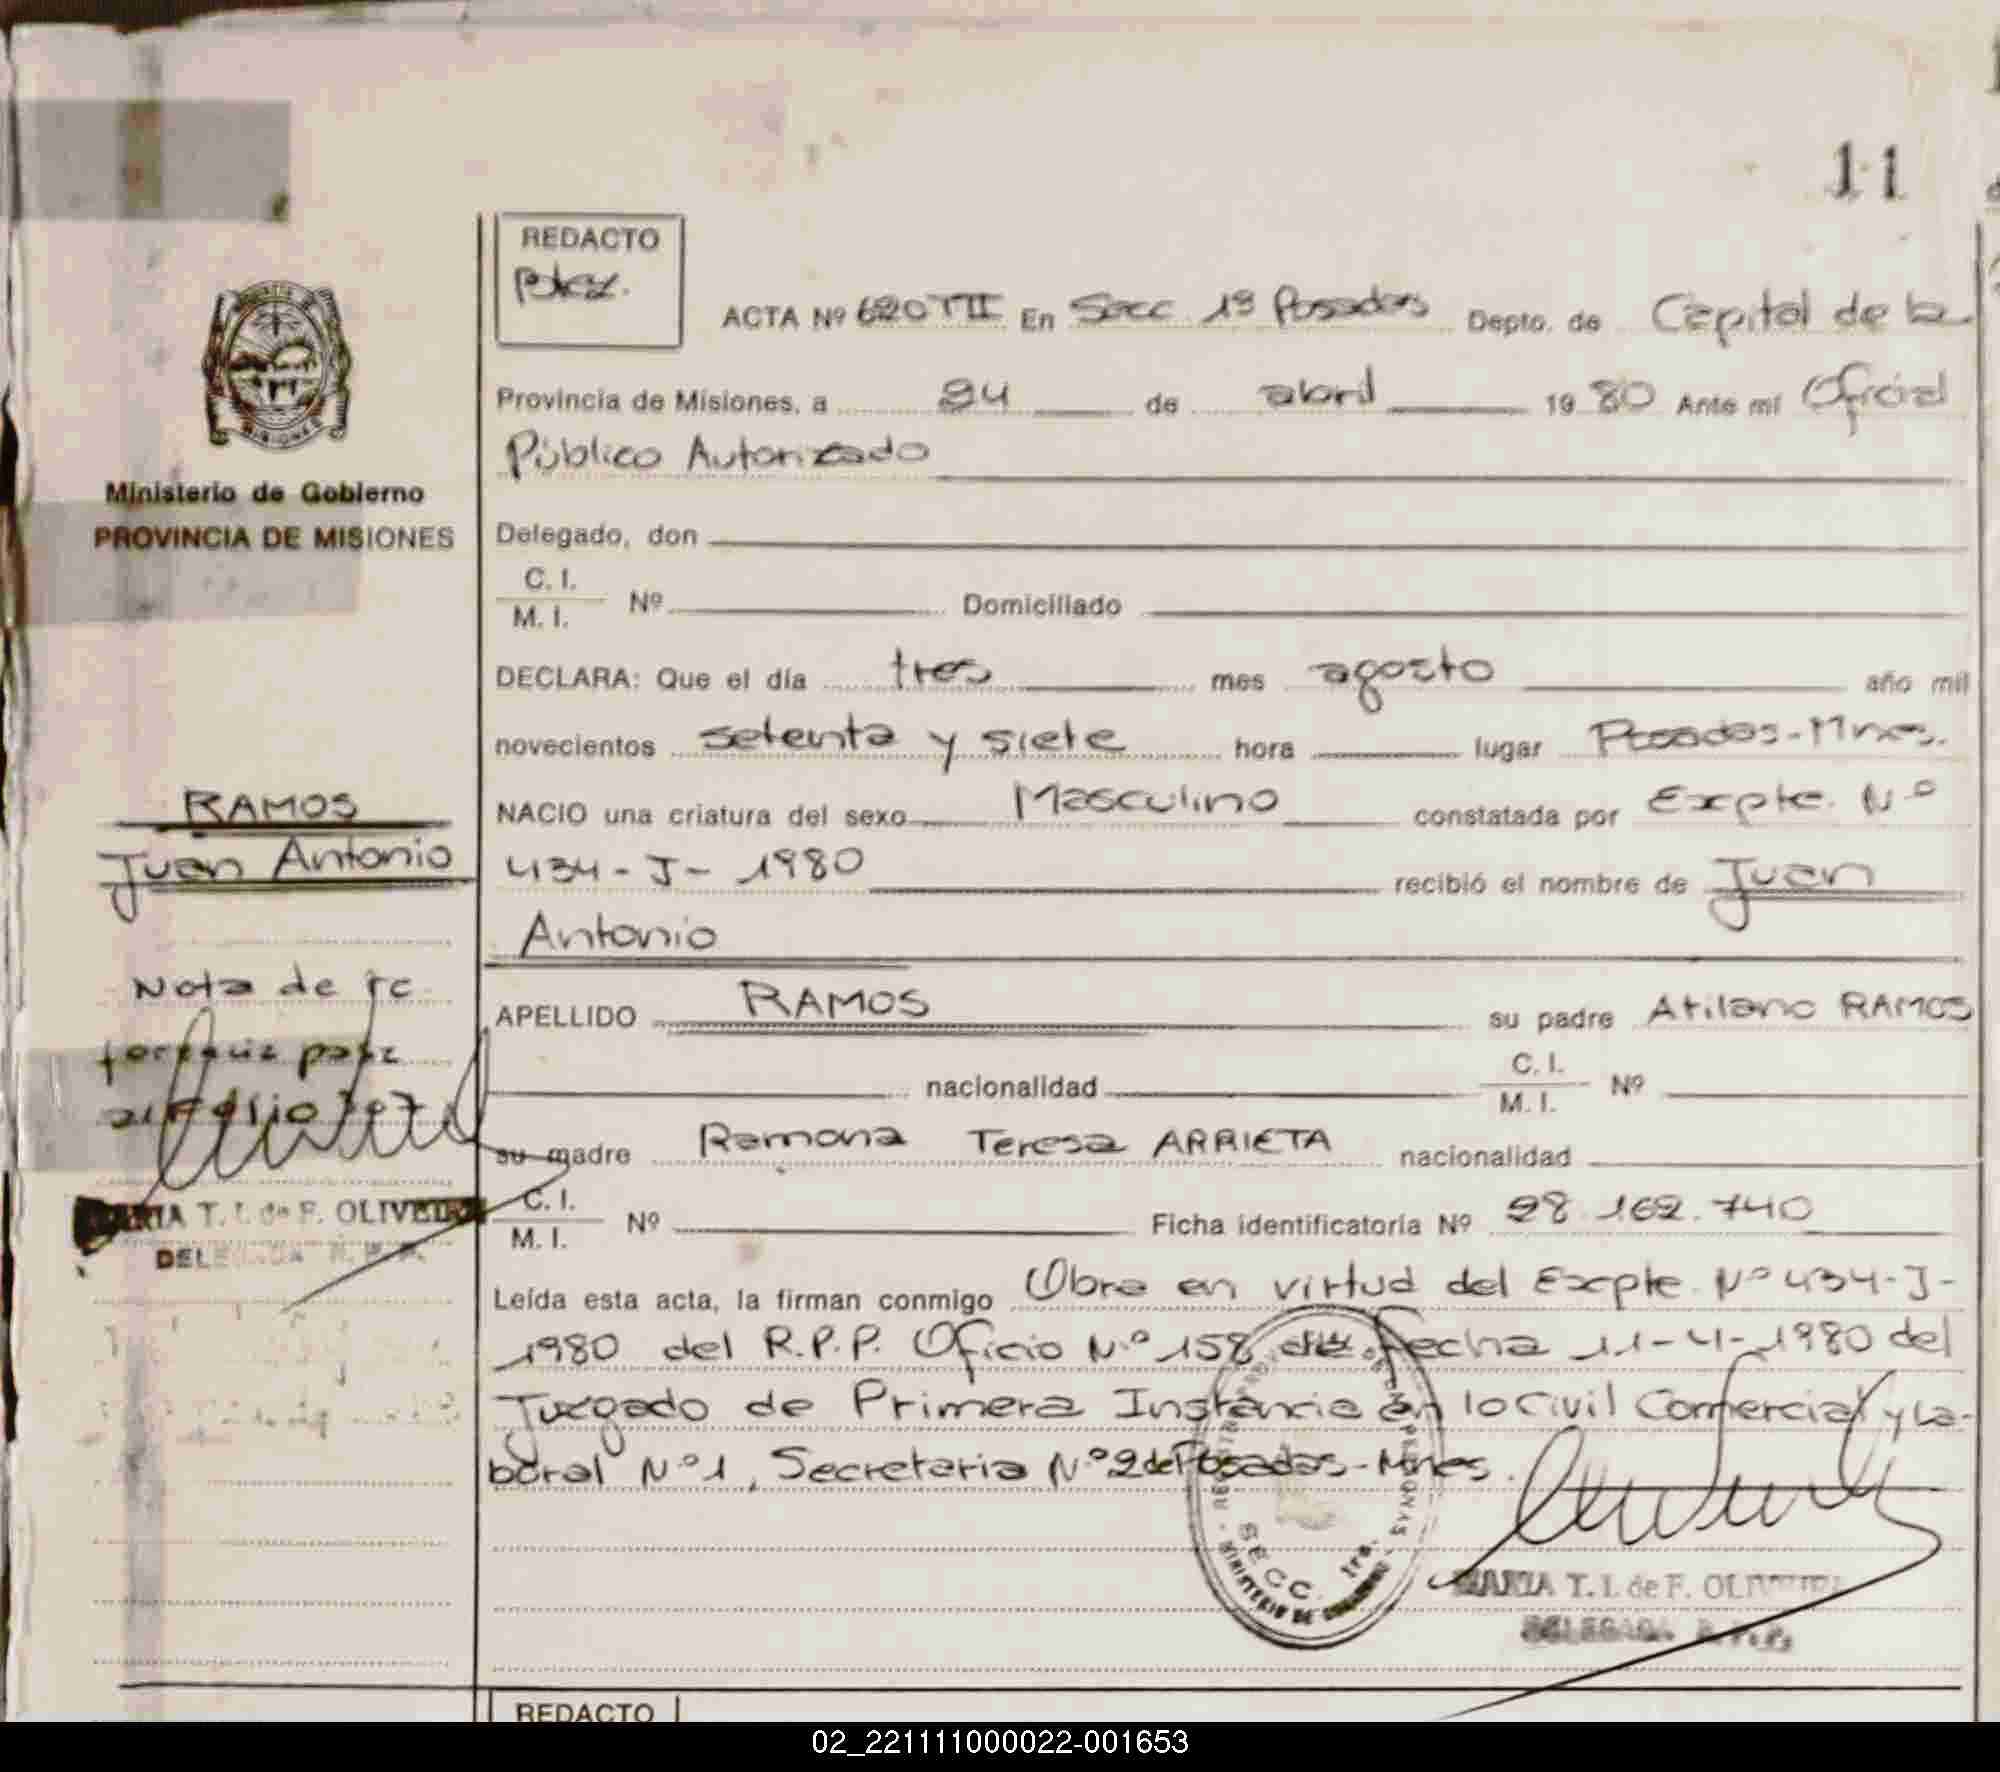 11
REDACTO
ACTA Nº 620 TII En Secc 1ª Posadas Depto. de Capital de la
Provincia de Misiones, a 24 de abril 1980 Ante mí Oficial
Público Autorizado
Ministerio de Gobierno
PROVINCIA DE MISIONES
MISIONES
Delegado, don
C. I.
M. I. Nº Domiciliado
DECLARA: Que el día tres mes agosto año mil
novecientos setenta y siete hora lugar Posadas-Mnes.
NACIO una criatura del sexo Masculino constatada por Expte. Nº
434-J-1980 recibió el nombre de Juan
Antonio
RAMOS
Juan Antonio
APELLIDO RAMOS su padre Atilano RAMOS
nacionalidad C. I.
M. I. Nº
su madre Ramona Teresa ARRIETA nacionalidad
C. I.
M. I. Nº Ficha identificatoria Nº 28.162.740
Nota de
al folio
MARIA T. I. de F. OLIVEIRA
DELEGADA R.P.P.
Leída esta acta, la firman conmigo Obra en virtud del Expte. Nº 434-J-
1980 del R.P.P. Oficio Nº 158 de fecha 11-4-1980 del
Juzgado de Primera Instancia en lo Civil Comercial y La-
boral Nº 1, Secretaria Nº 2 de Posadas-Mnes.
SECC. 1ra.
MINISTERIO DE GOBIERNO
MARIA T. I. de F. OLIVEIRA
DELEGADA R.P.P.
REDACTO
02_221111000022-001653